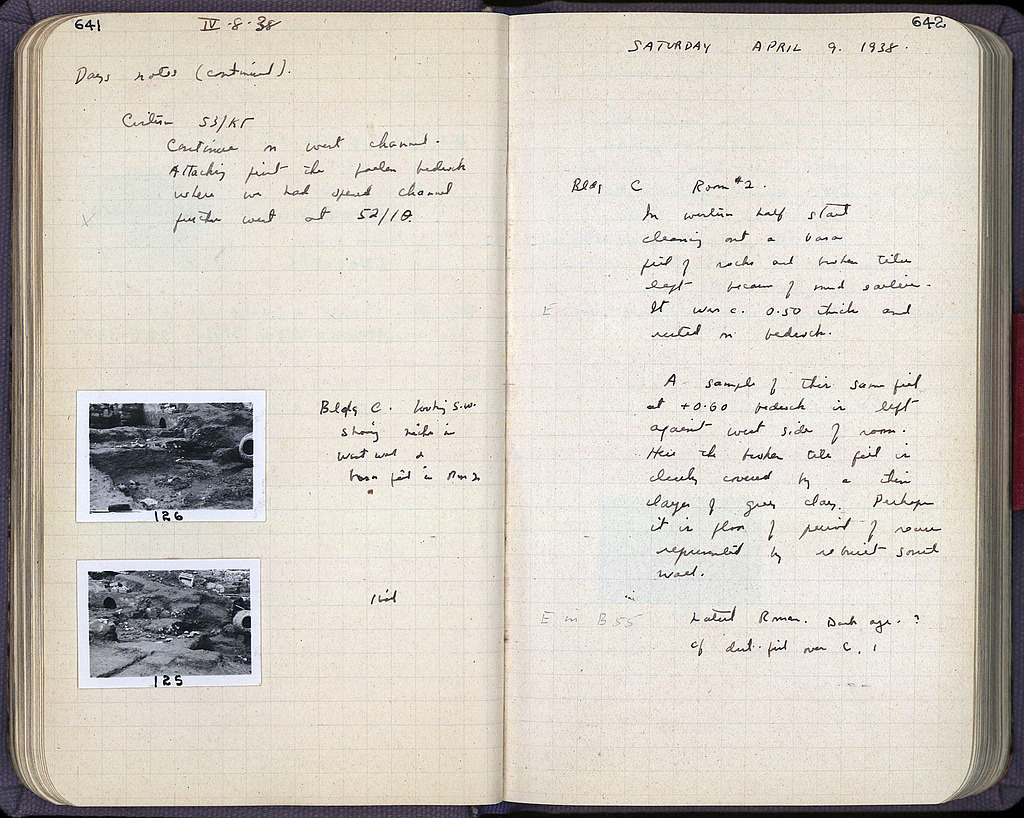 641
IV·8·38
Days notes (continued).
Cistern 53/ΚΓ
Continue in west channel.
Attacking first the fallen bedrock
where we had opened channel
further west at 52/ΙΘ.
X
Bldg C. looking s.w.
showing niche in
west wall &
basa fill in Rm 2
126
Ibid
125
642
SATURDAY APRIL 9. 1938.
Bldg C Room #2.
In western half start
cleaning out a basa
fill of rocks and broken tiles
left because of mud earlier.
E
It was c. 0.50 thick and
rested on bedrock.
A sample of this same fill
at +0.60 bedrock is left
against west side of room.
Here the broken tile fill is
clearly covered by a thin
layer of grey clay. Perhaps
it is floor of period of room
represented by rebuilt south
wall.
E in B 55
Latest Roman. Dark age. ?
cf dest. fill over C.